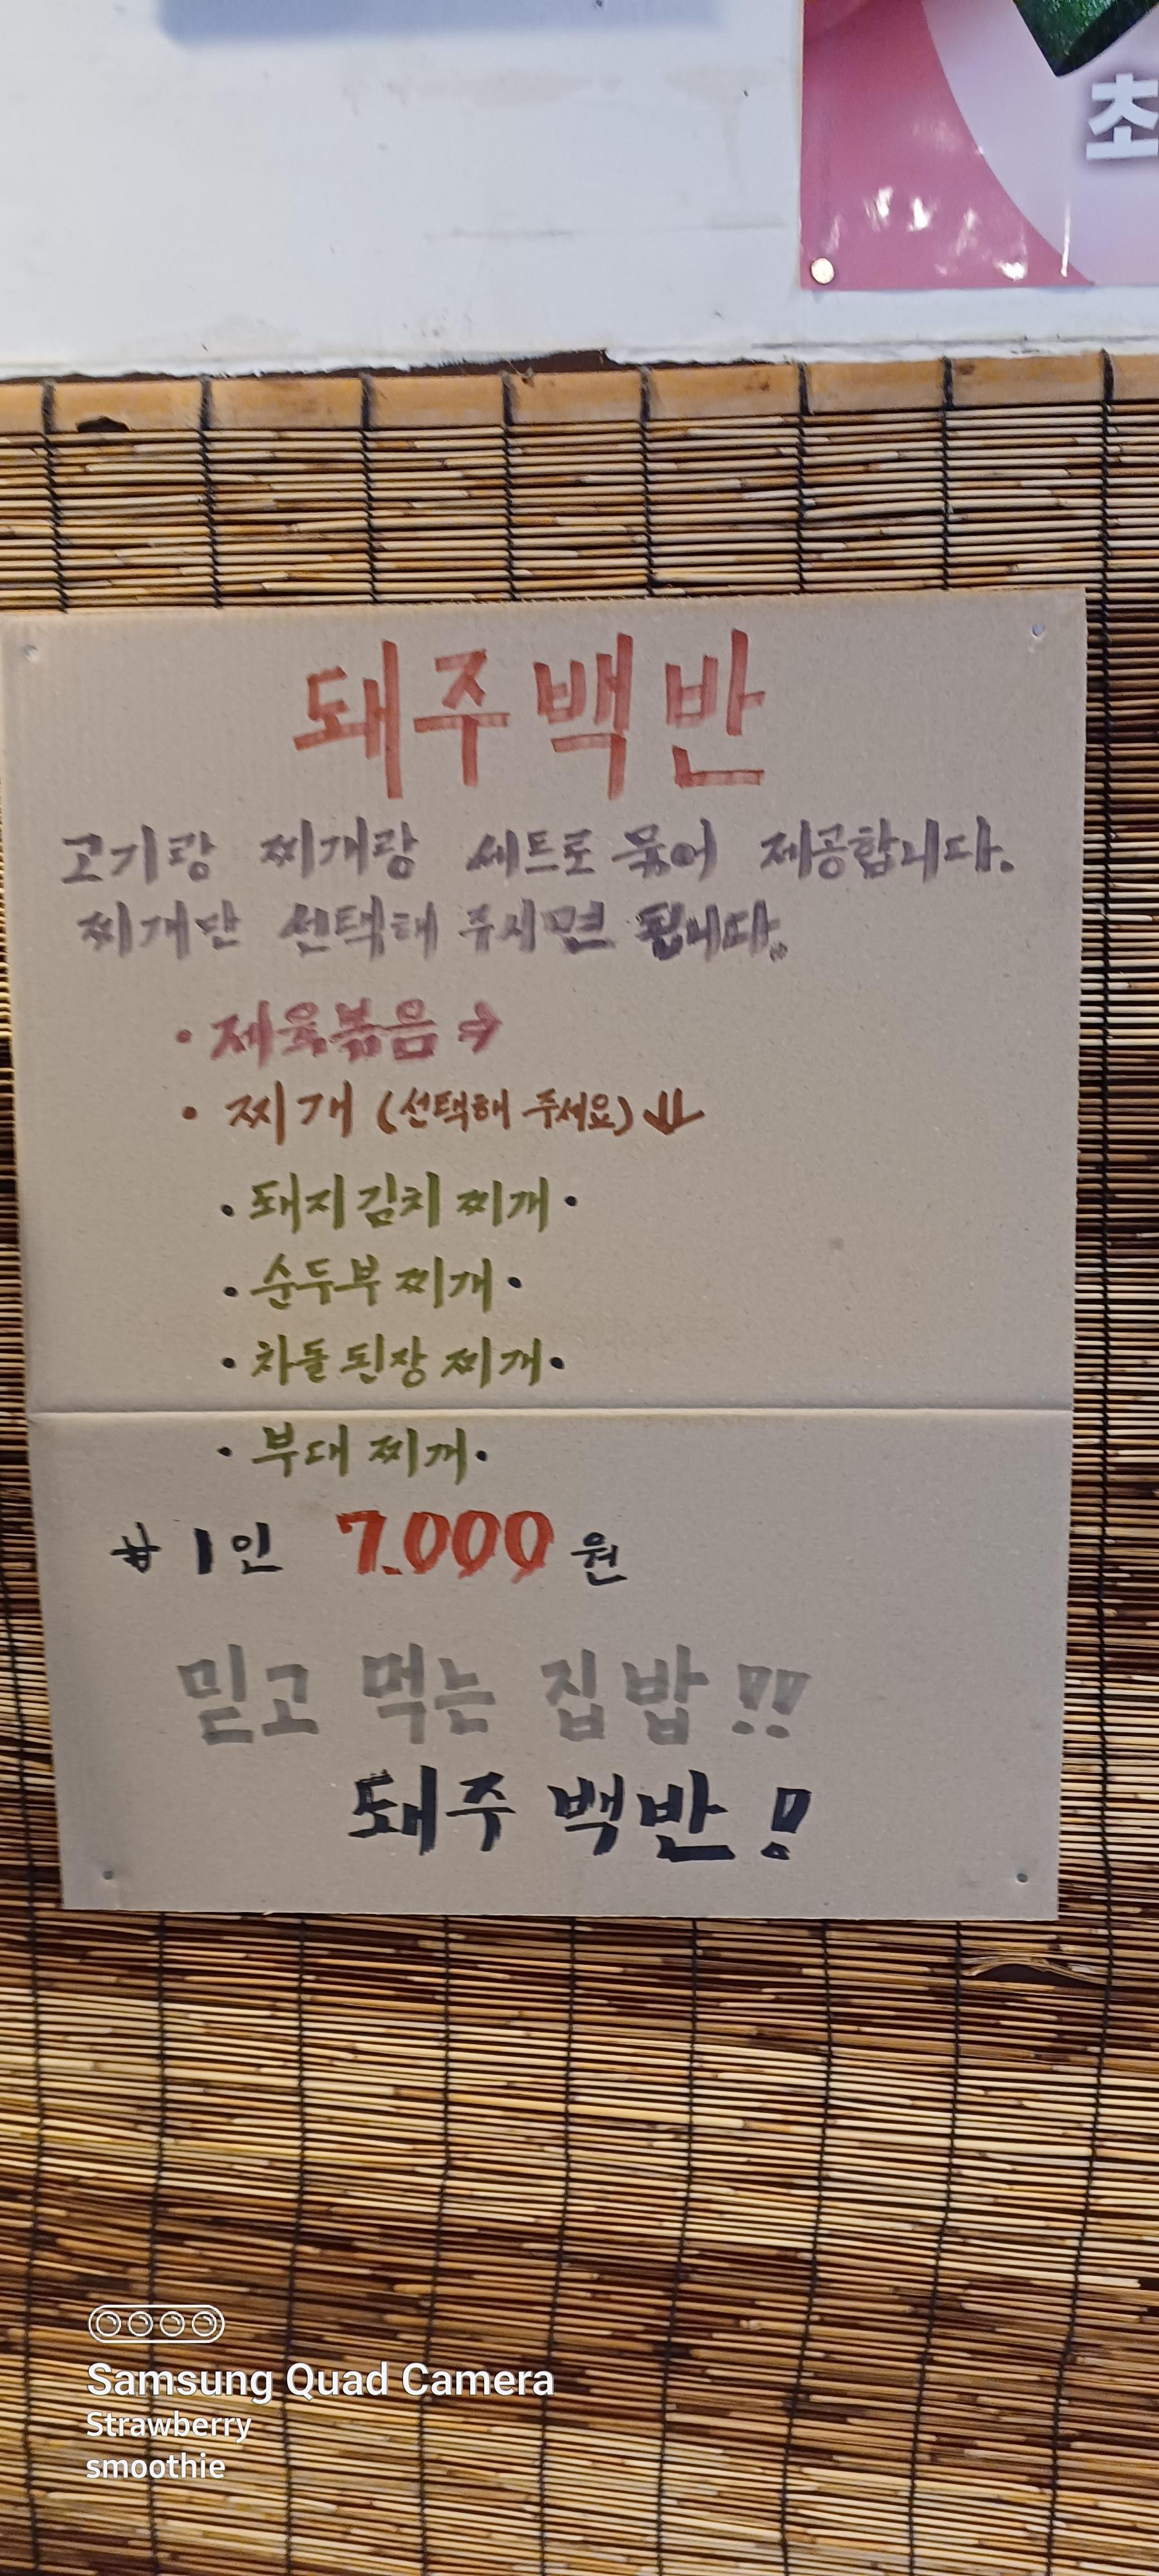 초
돼주백반
고기랑 찌개랑 세트로 묶어 제공합니다.
찌개만 선택해 주시면 됩니다.
• 제육볶음 ⇒
• 찌개 (선택해 주세요) ⇓
• 돼지김치 찌개 •
• 순두부 찌개 •
• 차돌 된장 찌개 •
• 부대 찌개 •
₩ 1인 7.000 원
믿고 먹는 집밥 !!
돼주 백반 !
Samsung Quad Camera
Strawberry
smoothie